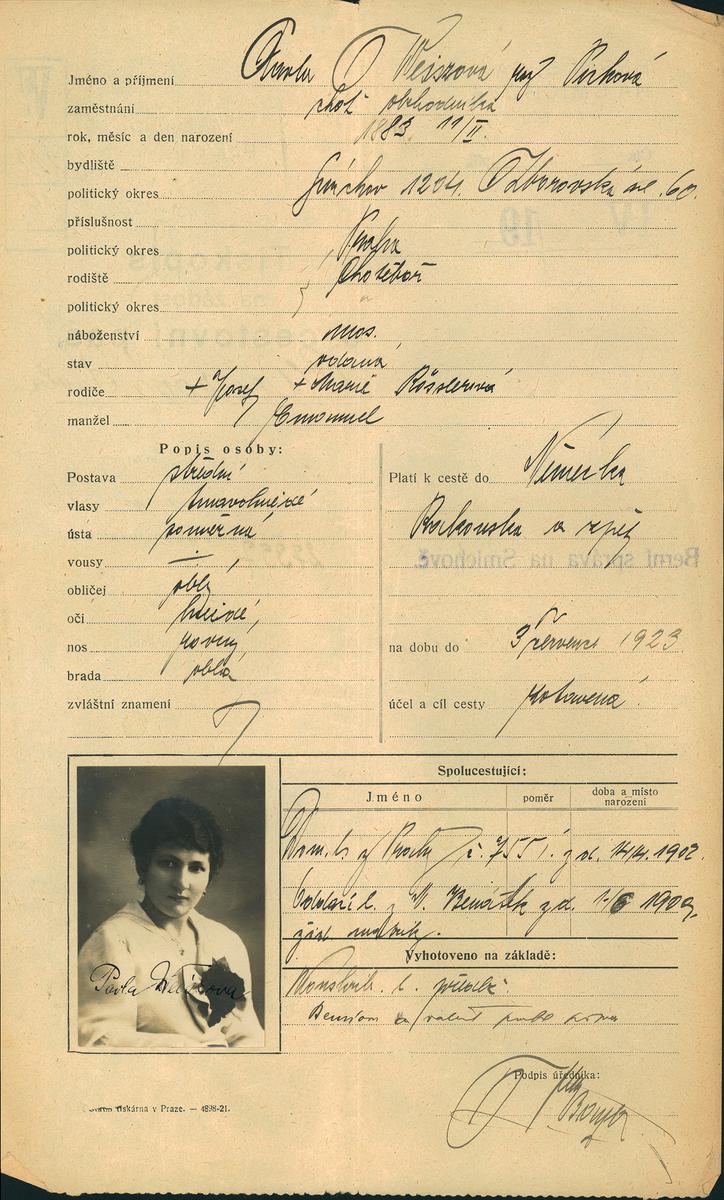 Jméno a příjmení Pavla Weiszová roz. Picková
zaměstnání choť obchodníka
rok, měsíc a den narození 1883 11/II.
bydliště
politický okres Smíchov 1204. Zborovská ul. 60.
příslušnost
politický okres Praha
rodiště Chotěboř
politický okres "
náboženství mos.
stav vdaná
rodiče + Josef + Marie Rösslerová
manžel Emanuel
Popis osóby:
Postava střední
vlasy tmavohnědé
ústa souměrná
vousy —
obličej oblý
oči hnědé
nos rovný
brada oblá
zvláštní znamení
Platí k cestě do Německa
Rakouska a zpět
Berní správa na Smíchově
na dobu do 3 července 1923
účel a cíl cesty zotavená
Spolucestující:
Jméno
poměr
doba a místo
narození
Dom. l. z Prahy č. 7551. z d. 14/4. 1902.
Oddací l. N. Benátek z d. 1/6 1909.
Vyhotoveno na základě:
Pavla Weiszová
Podpis úředníka:
tiskárna v Praze. — 4898-21.